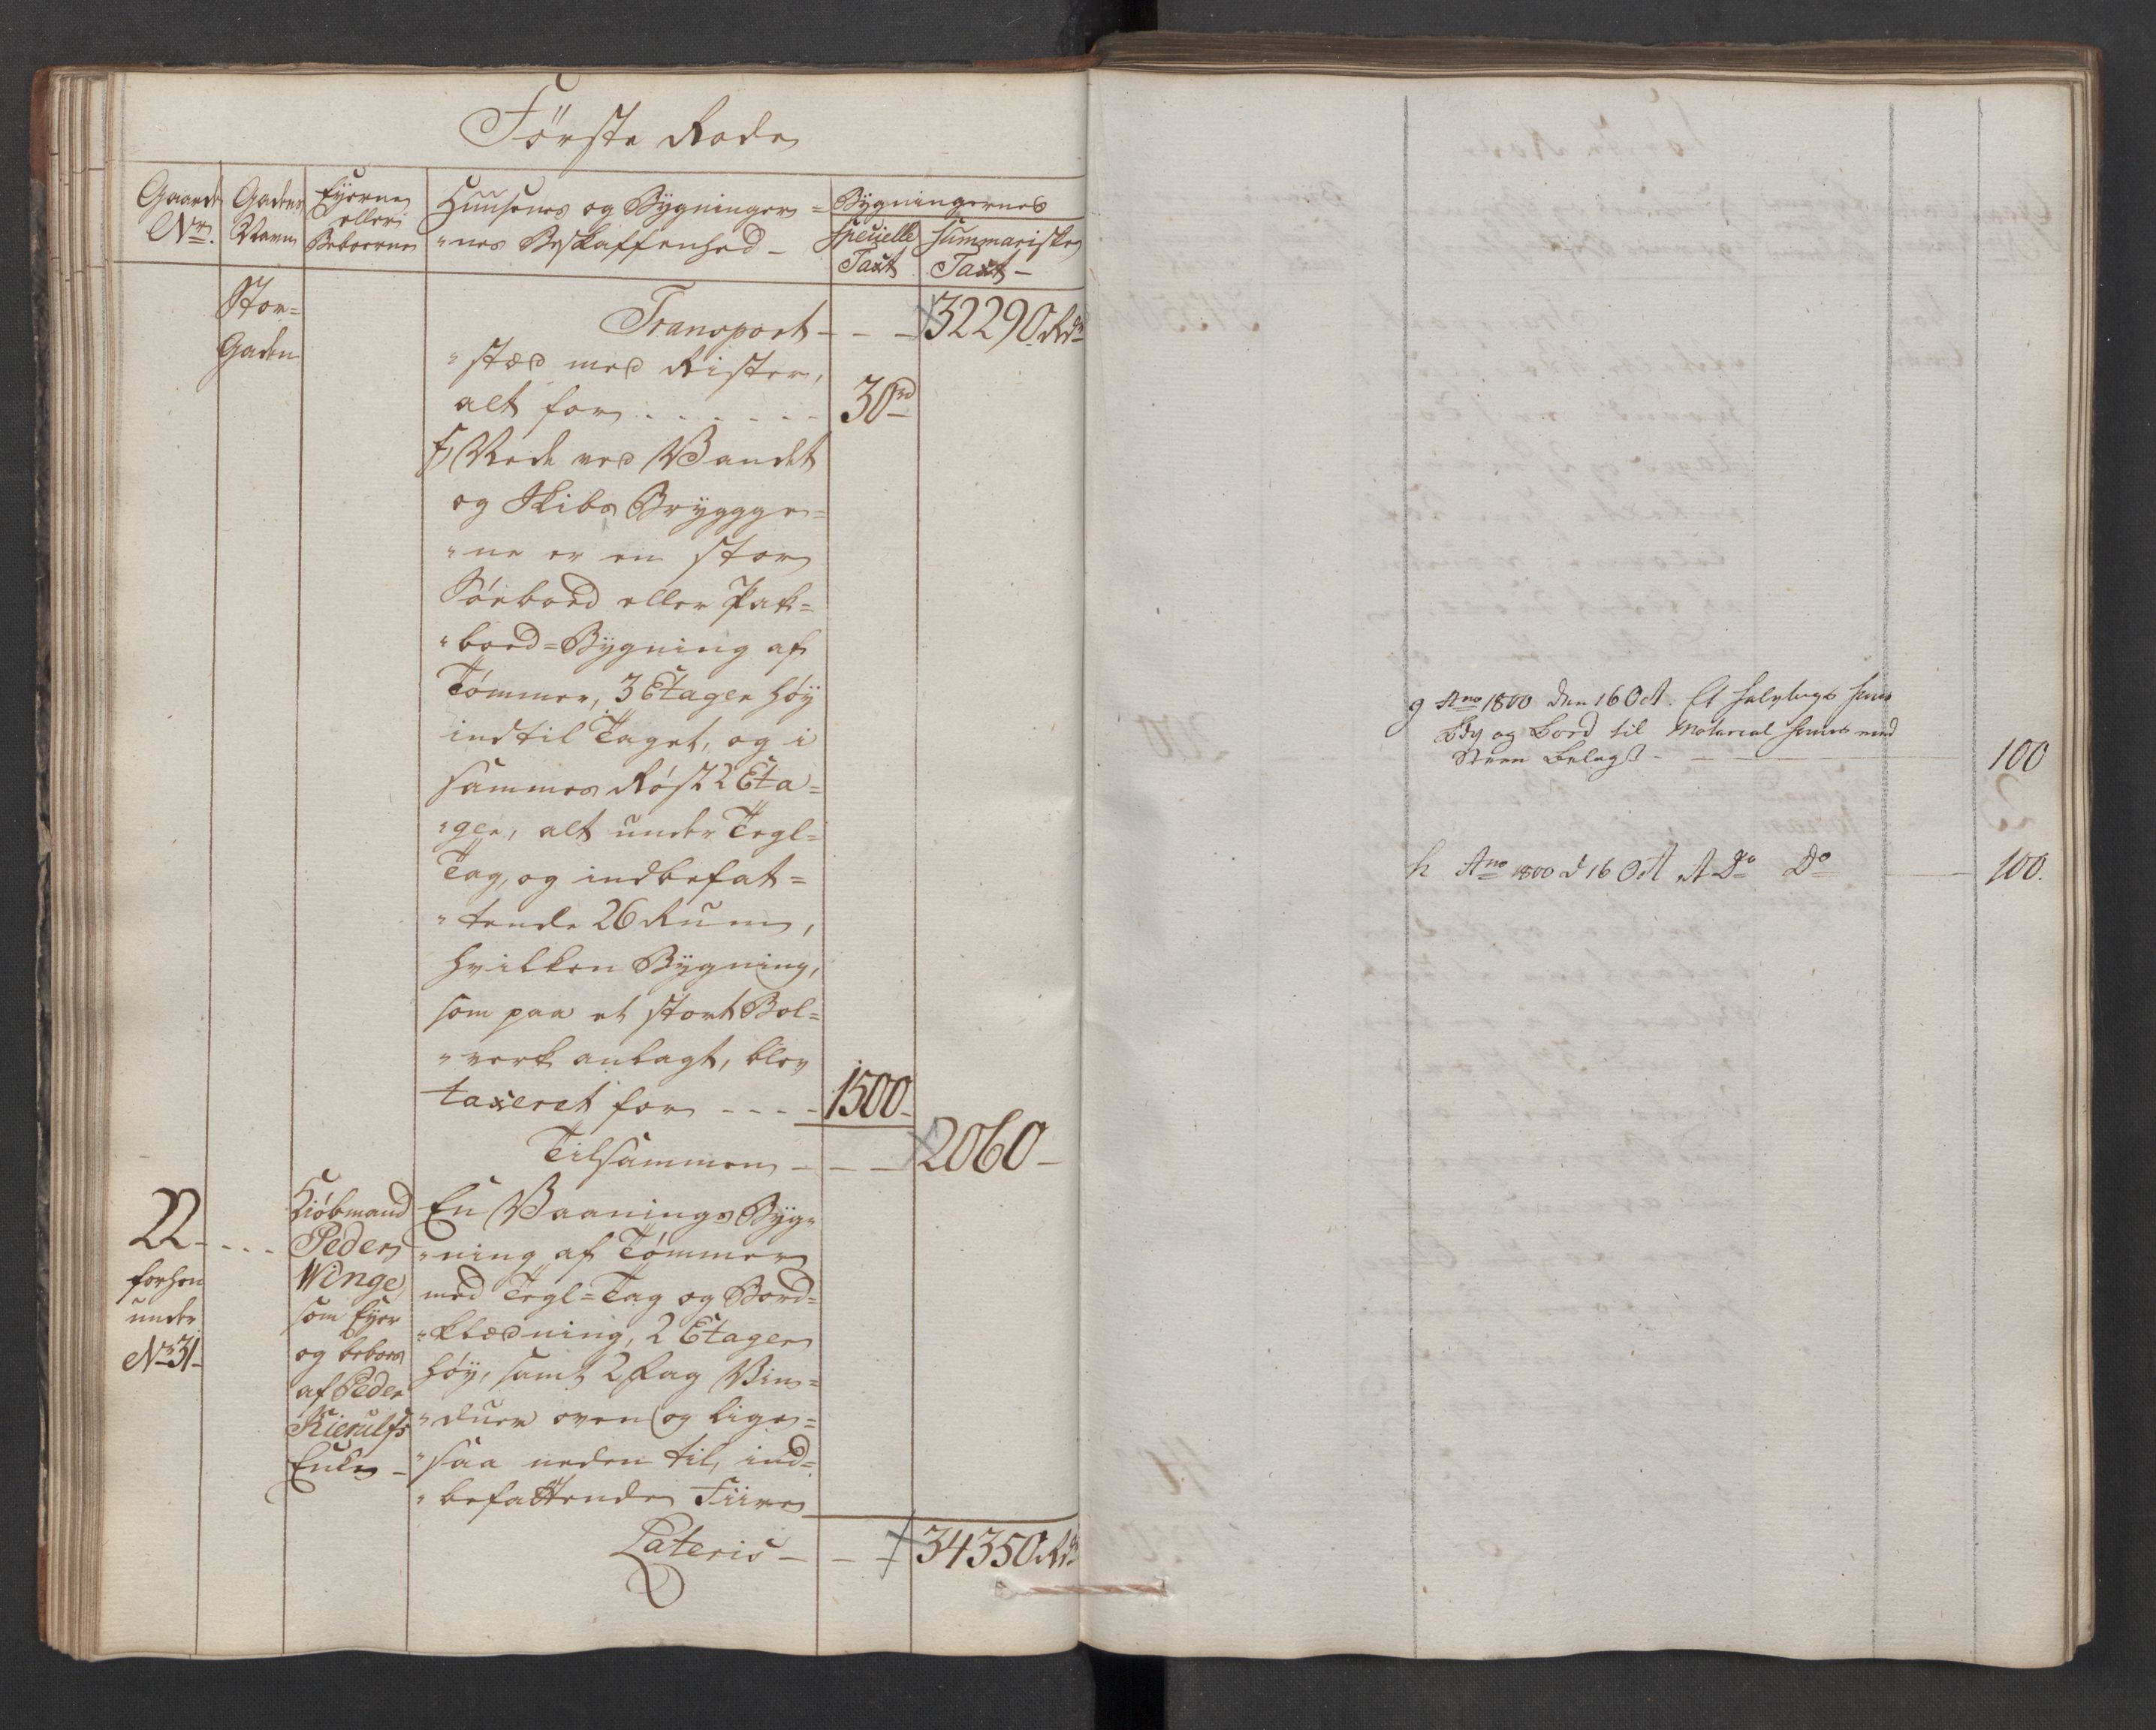 Første Rode
Gaardens Nr.
Gadens Navn
Eÿerne eller Beboerne
Huusenes og Bÿgninger=
"nes Beskaffenhed -
Bÿgningernes
Specielle Taxt
Summariske Taxt -
Stor=
Gaden
Transport - - - 32290 Rdr
"stæd med Rister,
alt for . . . . . . 30 rd
f) Nede ved Vandet
og Skibs Brÿggge=
"ne er en stor
Søeboed eller Pak=
"boed=Bÿgning af
Tømmer, 3 Etager høÿ
indtil Taget, og i
sammes Røst 2 Eta=
"ger, alt under Tegl=
Tag, og indbefat=
"tende 26 Rum,
hvilken Bÿgning,
som paa et stort Bol=
"verk anlagt, blev
taxeret for - - - - 1500 -
Tilsammen - - - 2060 -
22 - . . .
forhen
under
No 31 -
Kiøbmand
Peder
Winge
som Eÿer
og beboes
af Peder
Kierulfs
Enke -
En Vaanings Bÿg=
"ning af Tømmer
med Tegl=Tag og Bord=
"klædning, 2 Etager
høÿ, samt 2 Fag Vin=
"duer oven og lige=
"saa neden til, ind=
"befattende Fiire
Lateris - - - 34350 Rdr
g Ano 1800 den 16 Oct. Et
og Bord til Material Huus med
Steen Belagt - - 100
h Ano 1800 d 16 Oct Et Do Do - 100.